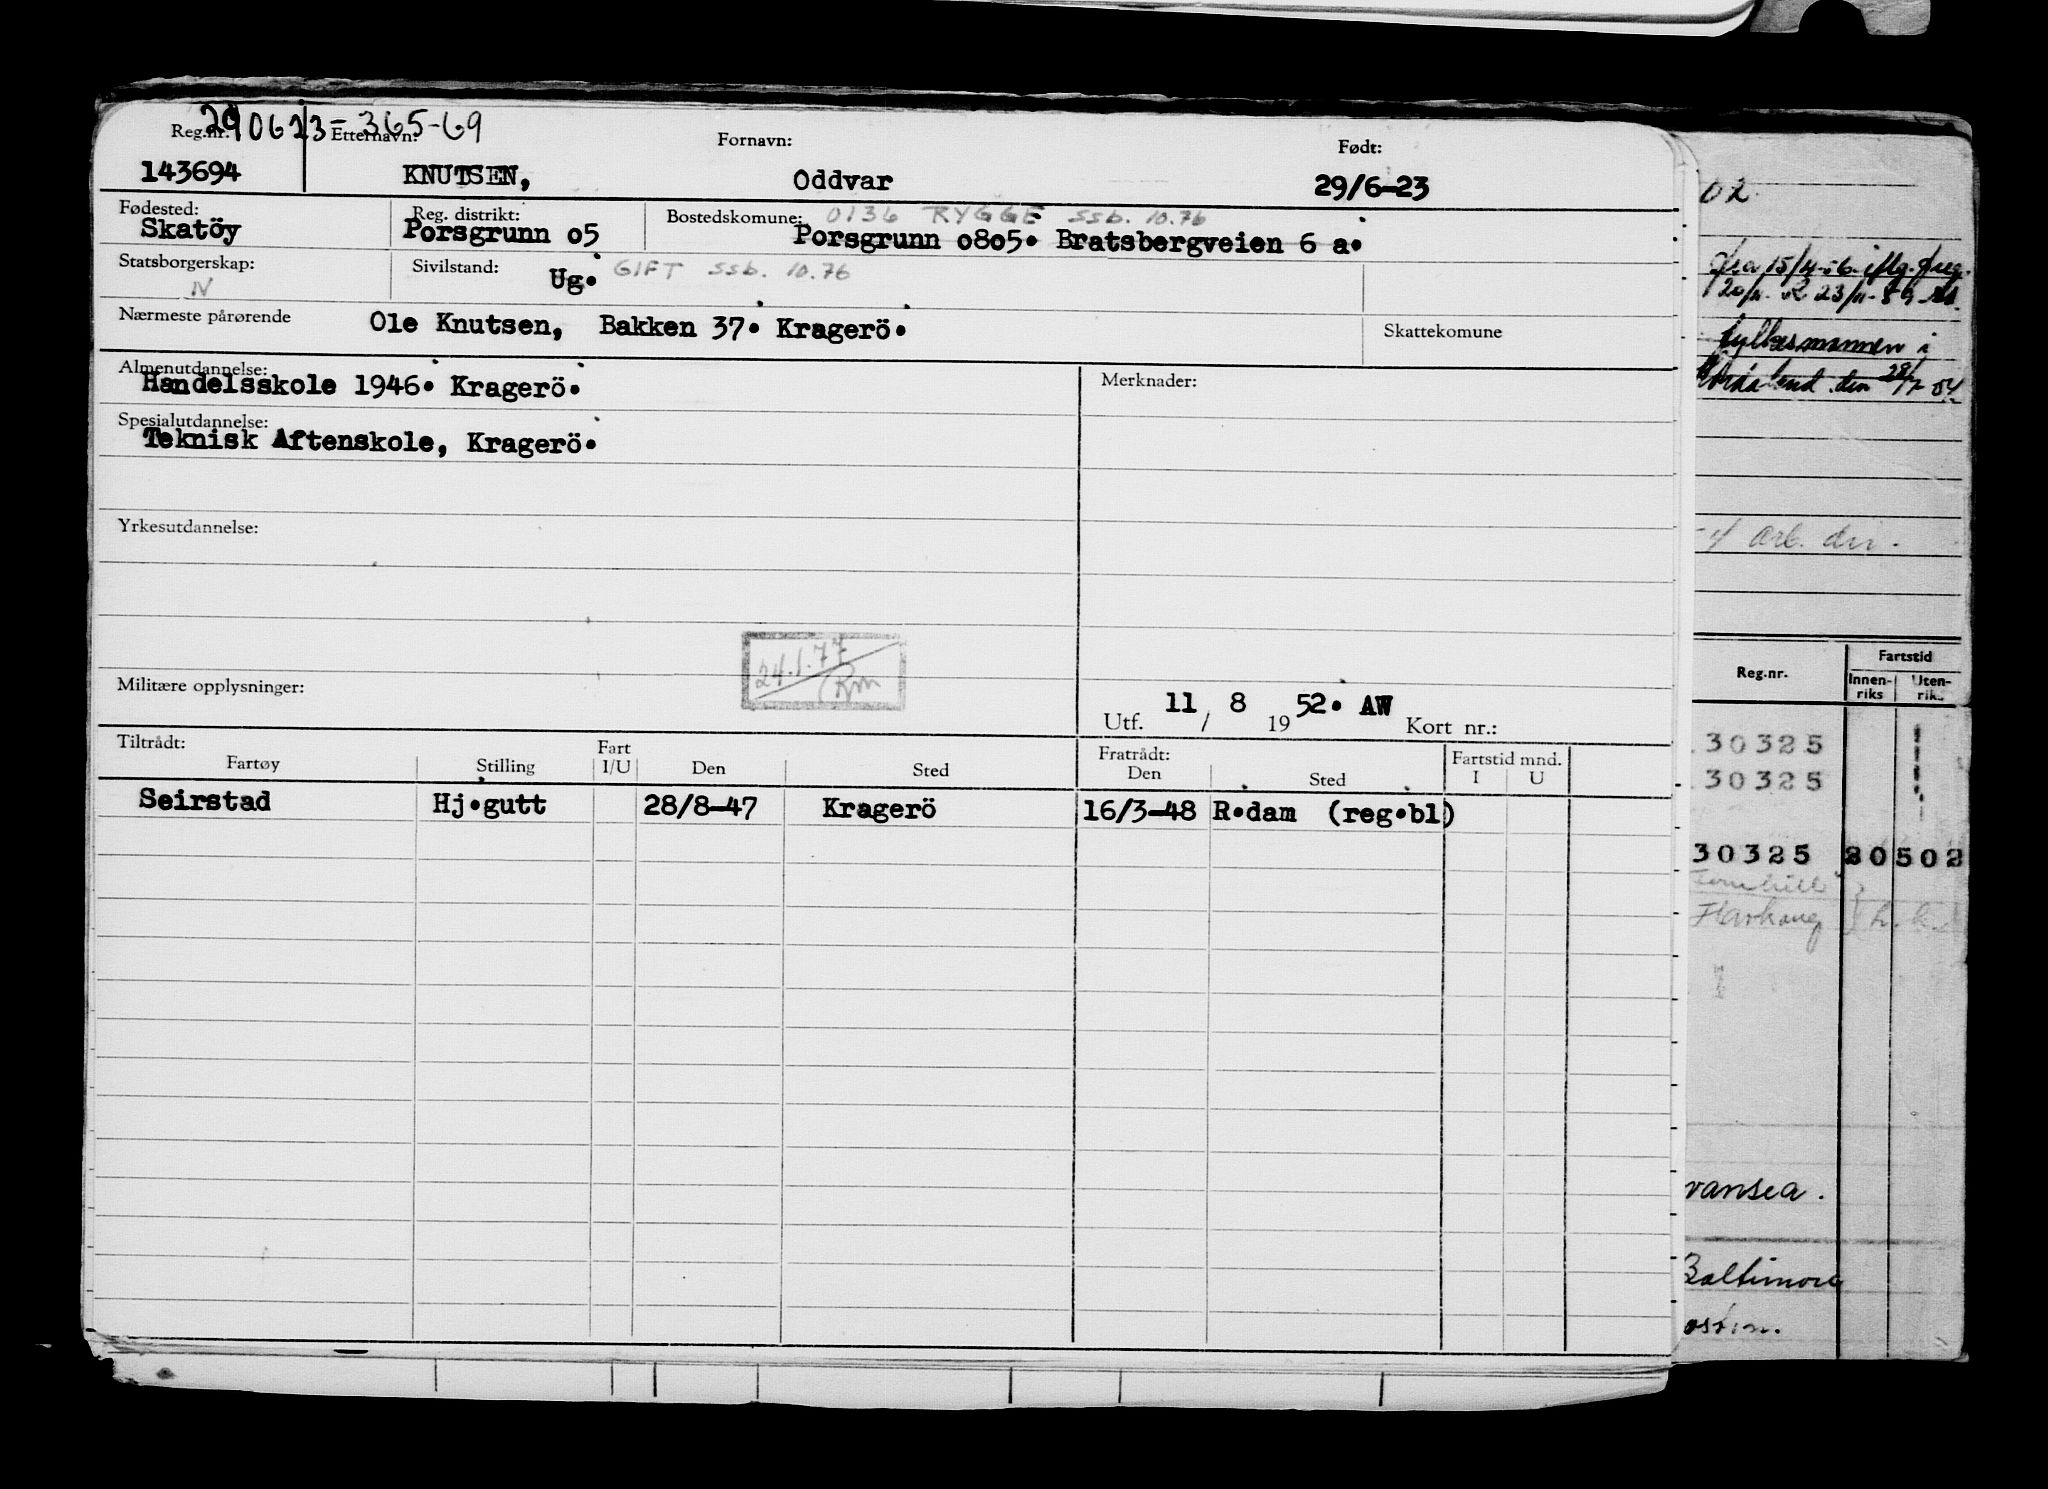 290623-365-69
Reg.nr. Etternavn: Fornavn: Født:
143694 KNUTSEN, Oddvar 29/6-23
Fødested: Reg. distrikt: Bostedskomune: 0136 RYGGE ssb. 10.76
Skatöy Porsgrunn o5 Porsgrunn o8o5. Bratsbergveien 6 a.
Statsborgerskap: Sivilstand: Ug. GIFT ssb. 10.76
N
Nærmeste pårørende Ole Knutsen, Bakken 37. Kragerö. Skattekomune
Almenutdannelse: Merknader:
Handelsskole 1946. Kragerö.
Spesialutdannelse:
Teknisk Aftenskole, Kragerö.
Yrkesutdannelse:
24.1.77
Rm
Militære opplysninger:
Utf. 11 / 8 19 52. AW Kort nr.:
Tiltrådt: Fratrådt:
Fartøy Stilling Fart I/U Den Sted Den Sted Fartstid mnd. I U
Seirstad Hj.gutt 28/8-47 Kragerö 16/3-48 R.dam (reg.bl)
02
fra 15/4-56 iflg.
23/11-59
fylkesmannen i
Hordaland den 28/7 54
-4 arb. dir.
Reg.nr. Fartstid
Innen-riks Uten-rik.
30325
30325
30325 20502
Baltimore